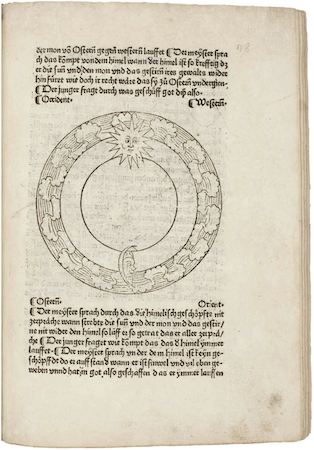 der mon võ Ostern gegen western lauffet ¶ Der meyster sprach
das kompt von dem himel wann der himel ist so krefftig dz
er die sun vnd den mon vnd das gestirn ires gewalts wider
hin fürt wie doch it recht wäre das sy zů Ostern vndergien
¶ Der junger fragt durch was geschüff got dis also
¶ Occident. ¶ Western.
¶ Ostern. Orient
¶ Der meyster sprach durch das die himelisch geschöpffte nit
zerpräche wann strebte die sun vnd der mon vnd das gestir/
ne nit wider den himel so lüff er so gerat das er aller zerprä/
che ¶ Der junger fraget wie kompt das das d himel ymmer
lauffet ¶ Der meyster sprach vnder dem himel ist keyn ge/
schöpffd do er auff stand wann er ist sinwel vnd al eben ge/
weben vnnd hat in got also geschaffen das er ymmer lauffen